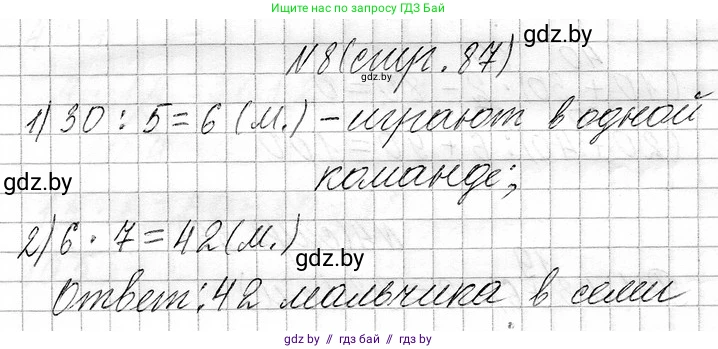 Ищите нас по запросу ГДЗ Бай
gdz.by
№8(стр. 87)
gdz.by
1) 30 : 5 = 6 (м.) - играют в одной
gdz.by
команде;
2) 6 · 7 = 42 (м.)
gdz.by
Ответ: 42 мальчика в семи
gdz.by // гдз бай // gdz.by